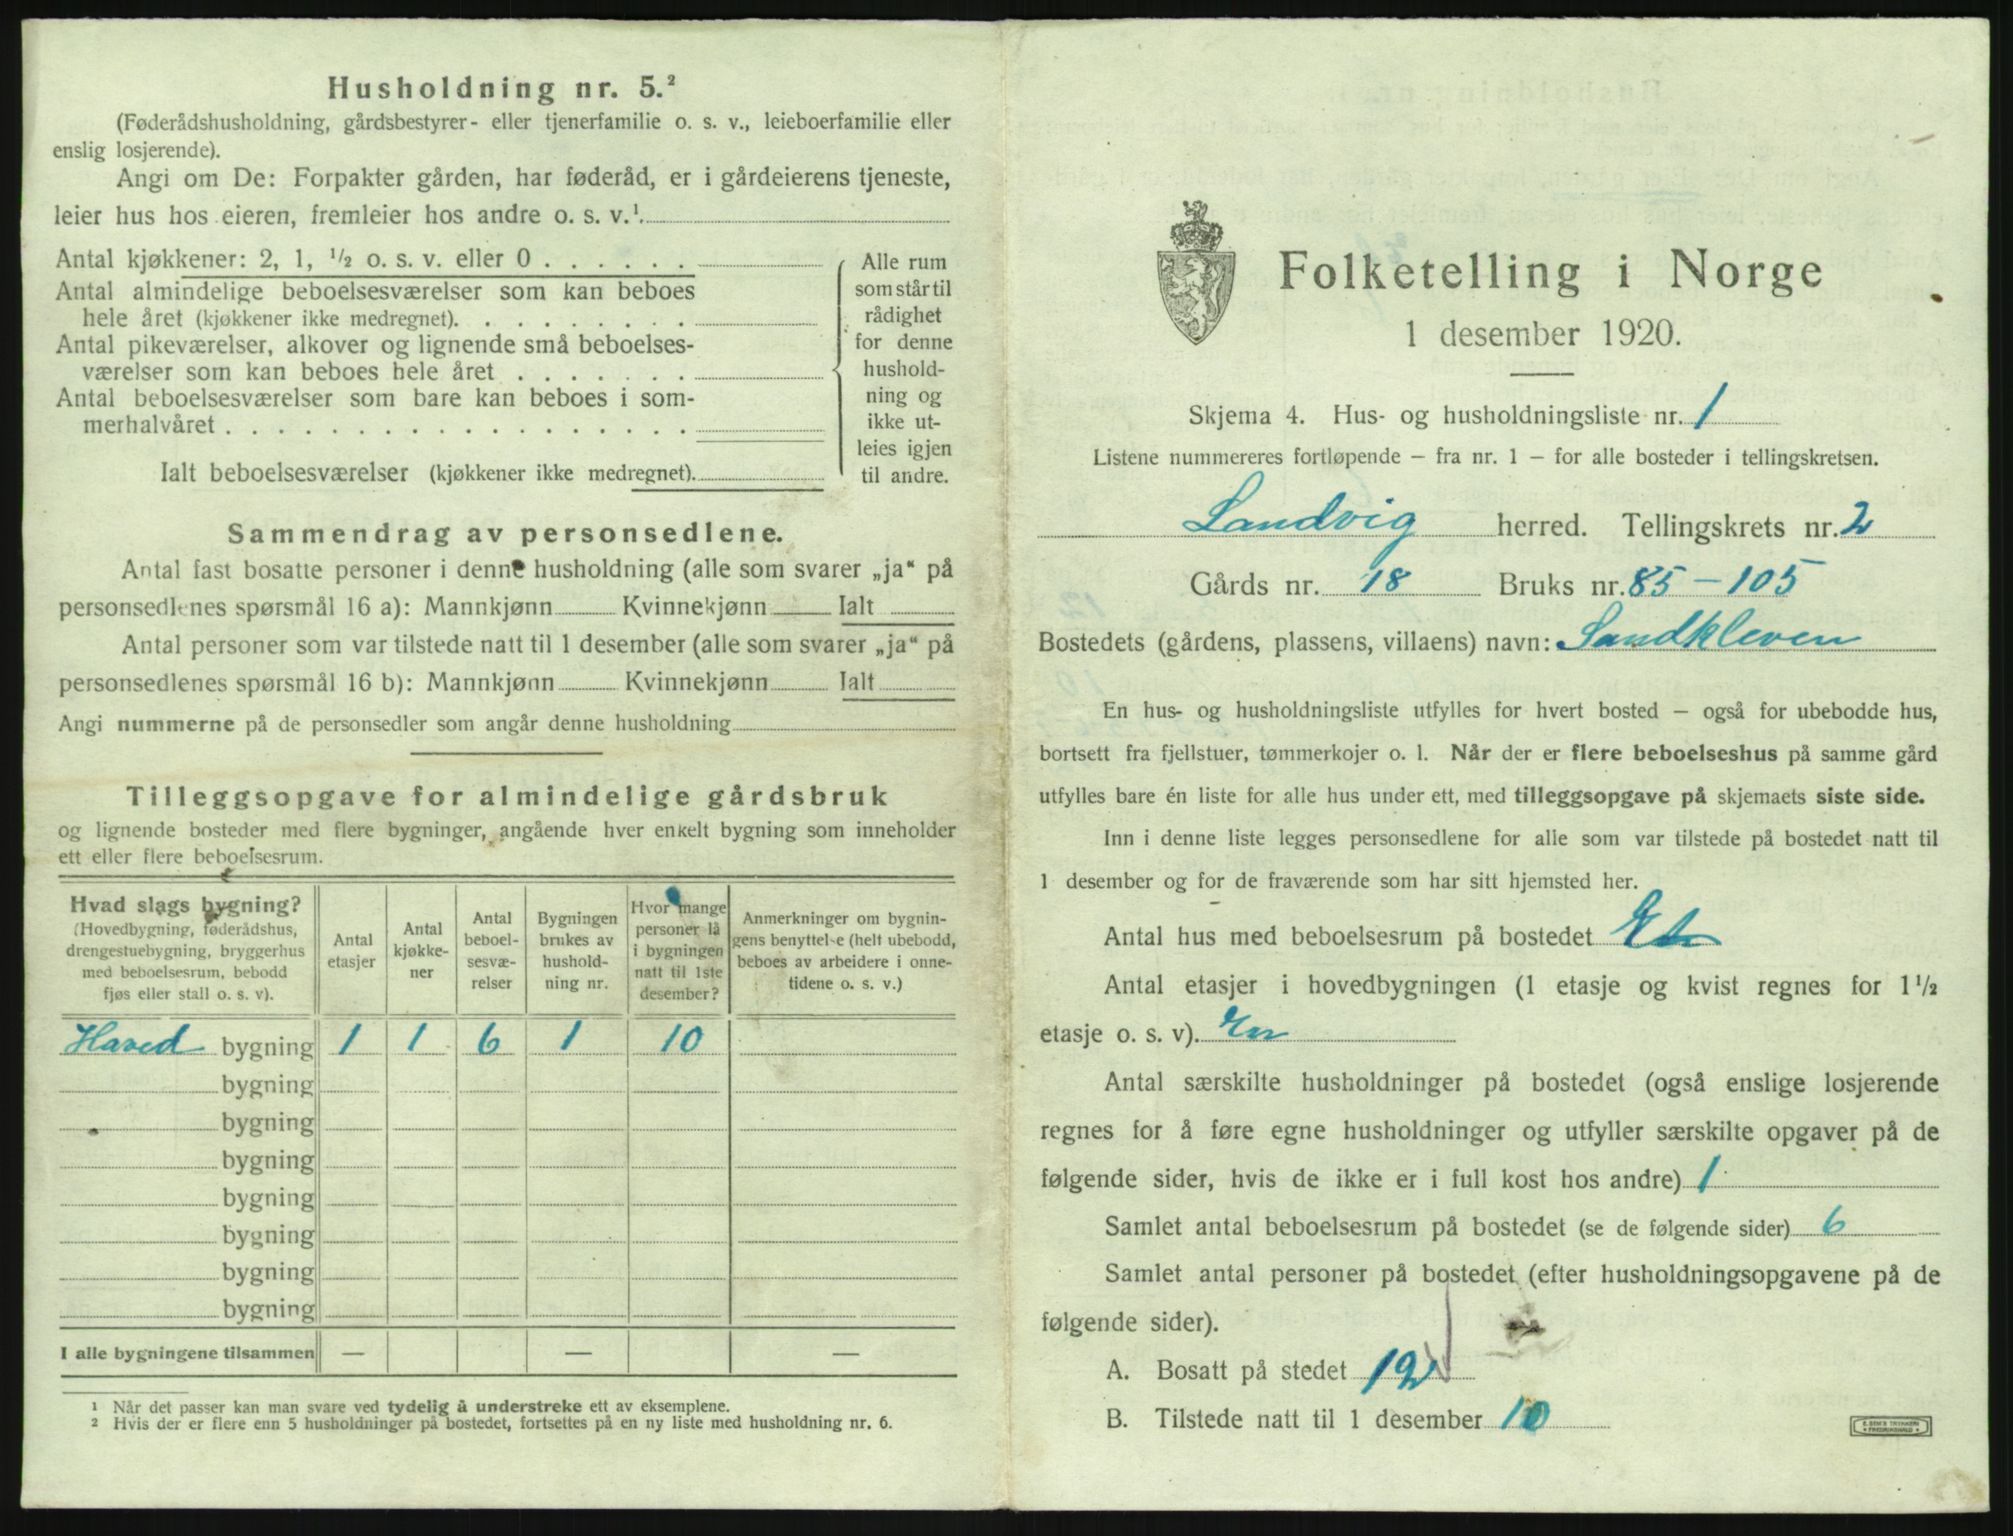 Husholdning nr. 5.²
(Føderådshusholdning, gårdsbestyrer- eller tjenerfamilie o. s. v., leieboerfamilie eller
enslig losjerende).
Angi om De: Forpakter gården, har føderåd, er i gårdeierens tjeneste,
leier hus hos eieren, fremleier hos andre o. s. v.¹
Antal kjøkkener: 2, 1, ½ o. s. v. eller 0 . . . . . .
Antal almindelige beboelsesværelser som kan beboes
hele året (kjøkkener ikke medregnet). . . . . . . . .
Antal pikeværelser, alkover og lignende små beboelses-
værelser som kan beboes hele året . . . . . . .
Antal beboelsesværelser som bare kan beboes i som-
merhalvåret . . . . . . . . . . . . . . . . . .
Ialt beboelsesværelser (kjøkkener ikke medregnet).
Alle rum
som står til
rådighet
for denne
hushold-
ning og
ikke ut-
leies igjen
til andre.
Sammendrag av personsedlene.
Antal fast bosatte personer i denne husholdning (alle som svarer „ja“ på
personsedlenes spørsmål 16 a): Mannkjønn Kvinnekjønn Ialt
Antal personer som var tilstede natt til 1 desember (alle som svarer „ja“ på
personsedlenes spørsmål 16 b): Mannkjønn Kvinnekjønn Ialt
Angi nummerne på de personsedler som angår denne husholdning
Tilleggsopgave for almindelige gårdsbruk
og lignende bosteder med flere bygninger, angående hver enkelt bygning som inneholder
ett eller flere beboelsesrum.
Hvad slags bygning?
(Hovedbygning, føderådshus,
drengestuebygning, bryggerhus
med beboelsesrum, bebodd
fjøs eller stall o. s. v).
Antal
etasjer
Antal
kjøkke-
ner
Antal
beboel-
sesvæ-
relser
Bygningen
brukes av
hushold-
ning nr.
Hvor mange
personer lå
i bygningen
natt til 1ste
desember?
Anmerkninger om bygnin-
gens benyttelse (helt ubebodd,
beboes av arbeidere i onne-
tidene o. s. v.)
Hoved bygning 1 1 6 1 10
bygning
bygning
bygning
bygning
bygning
bygning
bygning
I alle bygningene tilsammen — — —
¹ Når det passer kan man svare ved tydelig å understreke ett av eksemplene.
² Hvis der er flere enn 5 husholdninger på bostedet, fortsettes på en ny liste med husholdning nr. 6.
Folketelling i Norge
1 desember 1920.
Skjema 4. Hus- og husholdningsliste nr. 1
Listene nummereres fortløpende – fra nr. 1 – for alle bosteder i tellingskretsen.
Landvig herred. Tellingskrets nr. 2
Gårds nr. 18 Bruks nr. 85 – 105
Bostedets (gårdens, plassens, villaens) navn: Sandkleven
En hus- og husholdningsliste utfylles for hvert bosted – også for ubebodde hus,
bortsett fra fjellstuer, tømmerkojer o. l. Når der er flere beboelseshus på samme gård
utfylles bare én liste for alle hus under ett, med tilleggsopgave på skjemaets siste side.
Inn i denne liste legges personsedlene for alle som var tilstede på bostedet natt til
1 desember og for de fraværende som har sitt hjemsted her.
Antal hus med beboelsesrum på bostedet
Antal etasjer i hovedbygningen (1 etasje og kvist regnes for 1½
etasje o. s. v). En
Antal særskilte husholdninger på bostedet (også enslige losjerende
regnes for å føre egne husholdninger og utfyller særskilte opgaver på de
følgende sider, hvis de ikke er i full kost hos andre) 1
Samlet antal beboelsesrum på bostedet (se de følgende sider) 6
Samlet antal personer på bostedet (efter husholdningsopgavene på de
følgende sider).
A. Bosatt på stedet 12
B. Tilstede natt til 1 desember 10